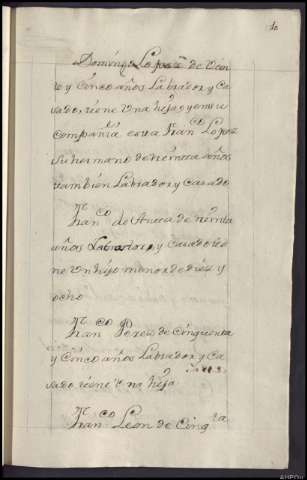 10
Domingo Lopez de Vein
te y cinco años Labrador y Ca
sado, tiene Una hija, y en su
compañia esta Fran.co Lopez
su hermano de treinta años
tambien Labrador y casado
Fran.co de Aneca de treinta
años Labrador, y casado tie
ne Un hijo menor de diez y
ocho
Fran.co Perez de Cinquenta
y Cinco años Labrador y Ca
sado tiene Una hija
Fran.co Leon de Cinq.ta
AHPOu